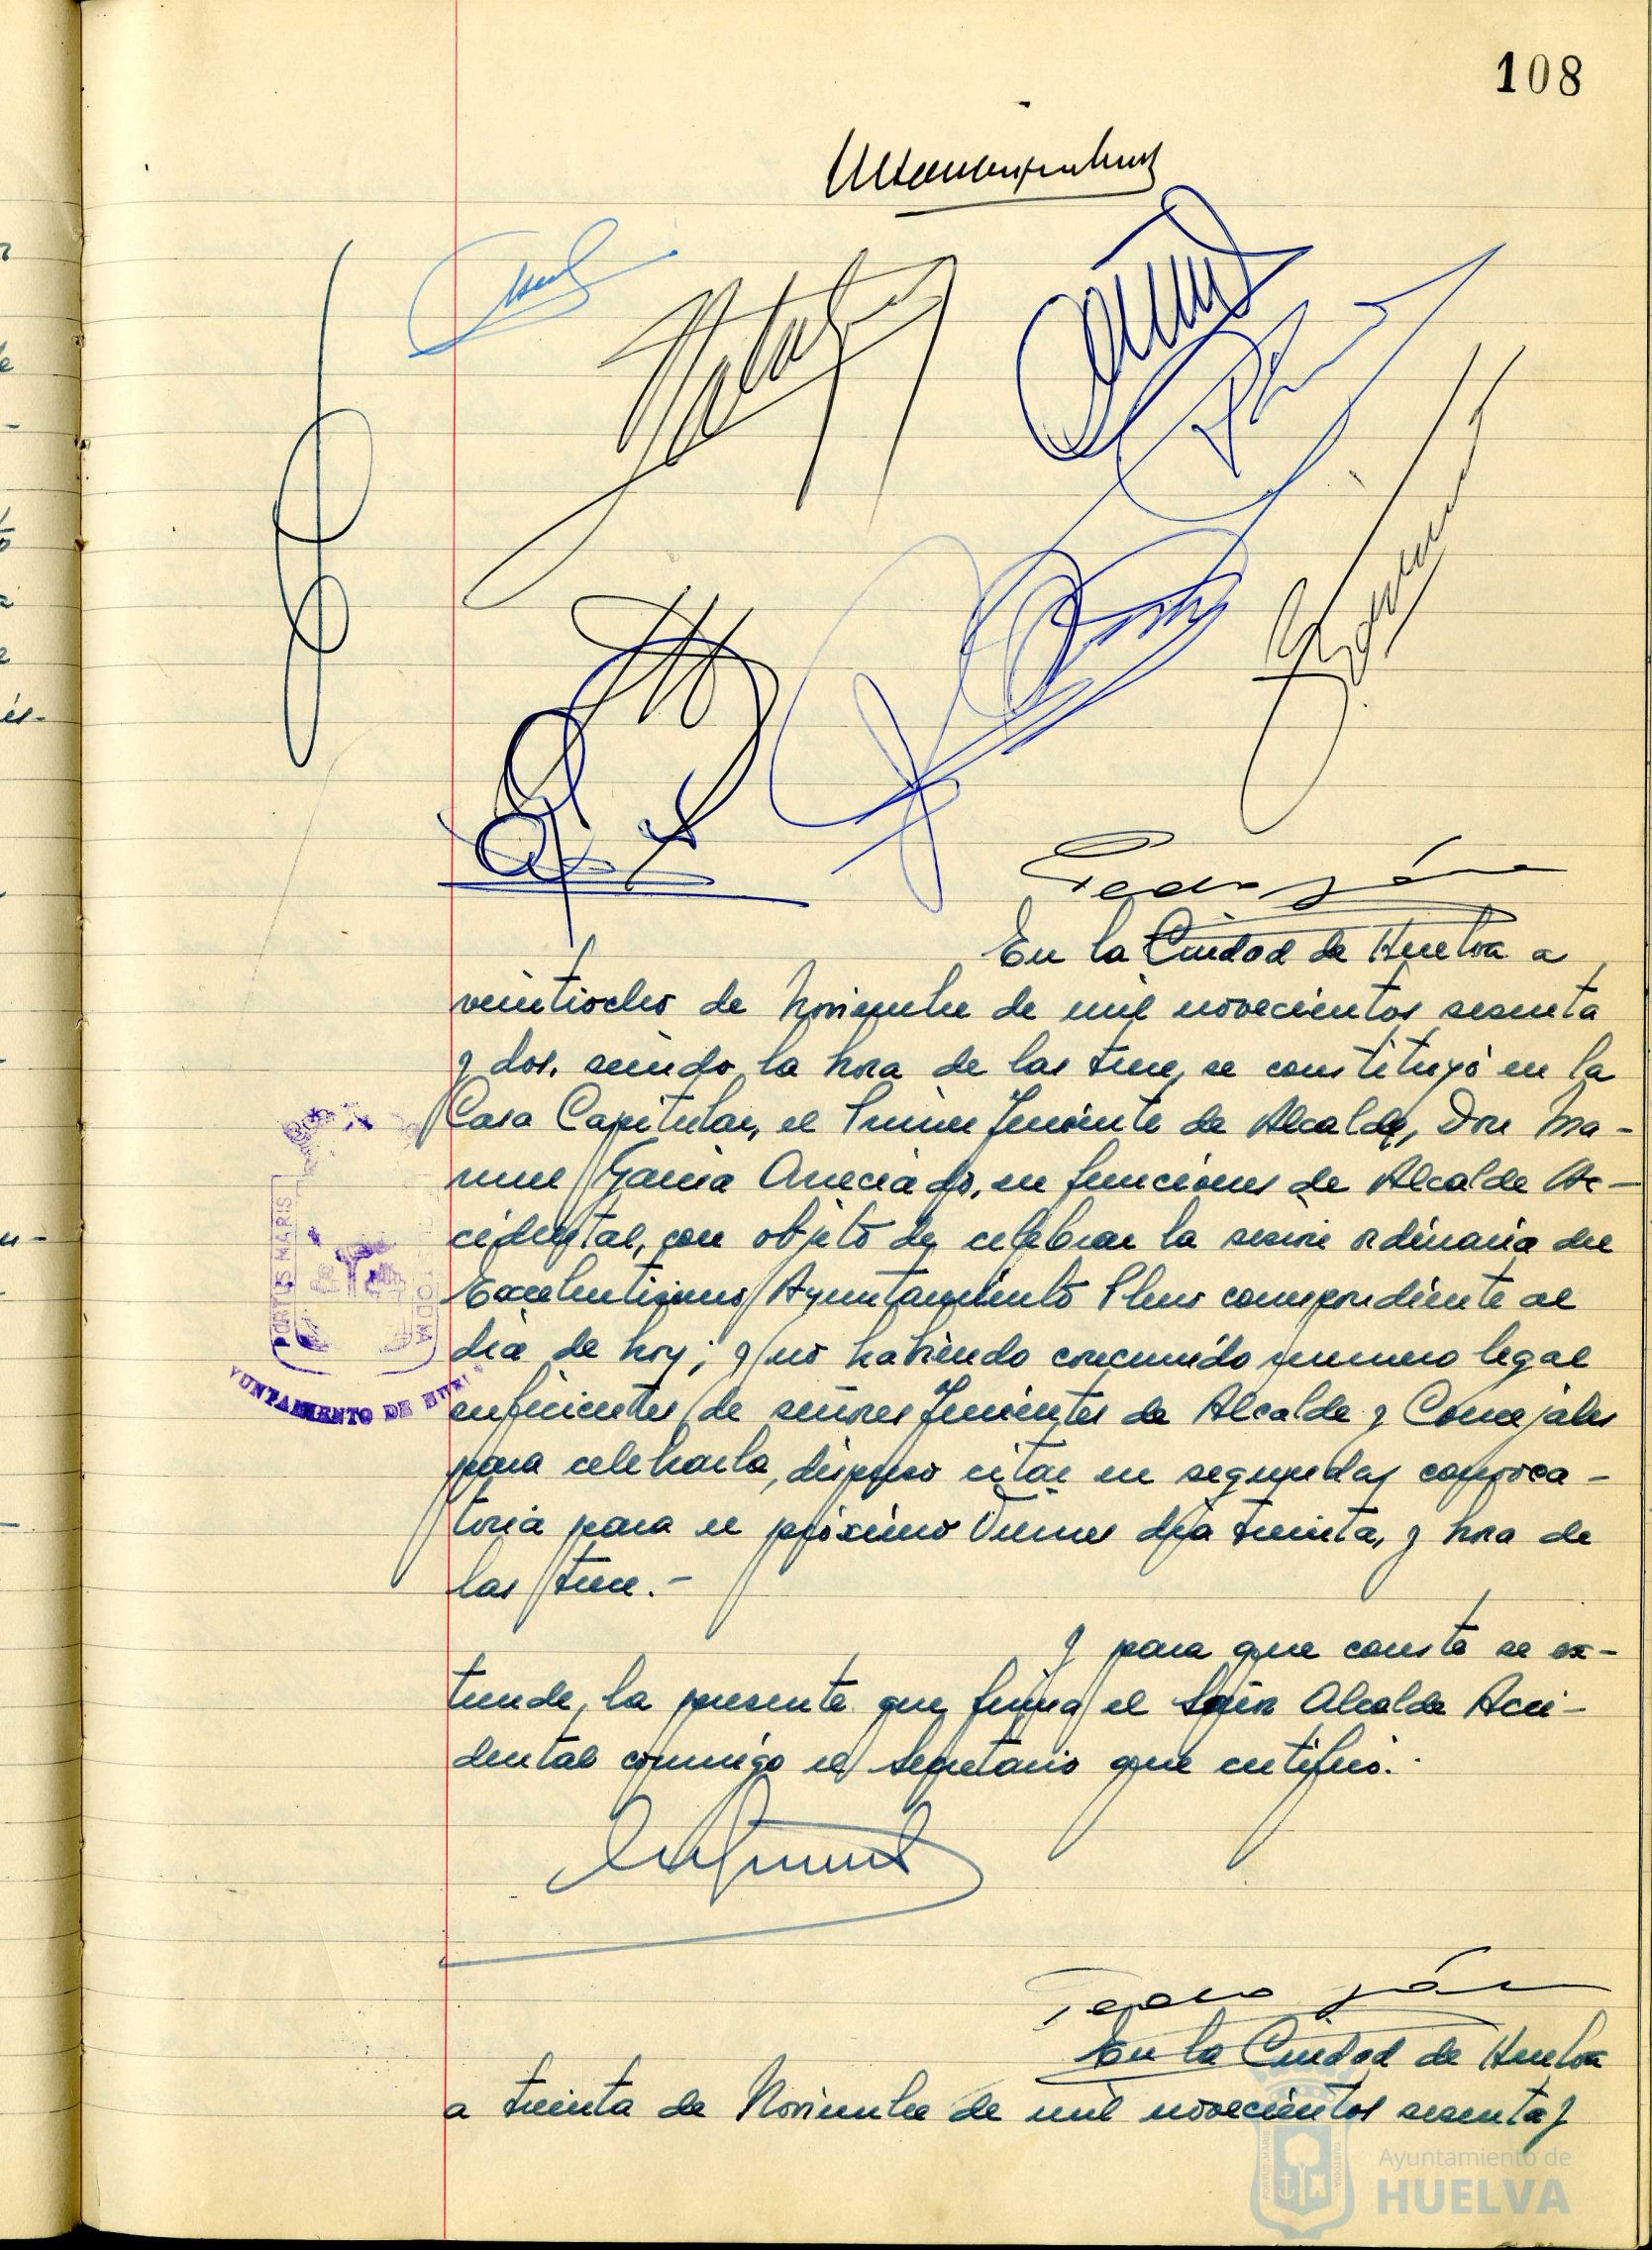 108
Pedro
En la Ciudad de Huelva a
veintiocho de Noviembre de mil novecientos sesenta
y dos, siendo la hora de las trece, se constituyó en la
Casa Capitular, el Primer Teniente de Alcalde, Don Ma-
nuel García Anreciado, en funciones de Alcalde Ac-
cidental, con objeto de celebrar la sesión ordinaria del
Excelentísimo Ayuntamiento Pleno correspondiente al
día de hoy; y no habiendo concurrido número legal
suficientes de señores Tenientes de Alcalde y Concejales
para celebrarla, dispuso citar en segunda convoca-
toria para el próximo Viernes día treinta, y hora de
las trece.-
Y para que conste se ex-
tiende, la presente que firma el Señor Alcalde Acci-
dental conmigo el Secretario que certifico.-
Pedro
En la Ciudad de Huelva
a treinta de Noviembre de mil novecientos sesenta y
PORTUS MARIS
AYUNTAMIENTO DE HUELVA
Ayuntamiento de
HUELVA